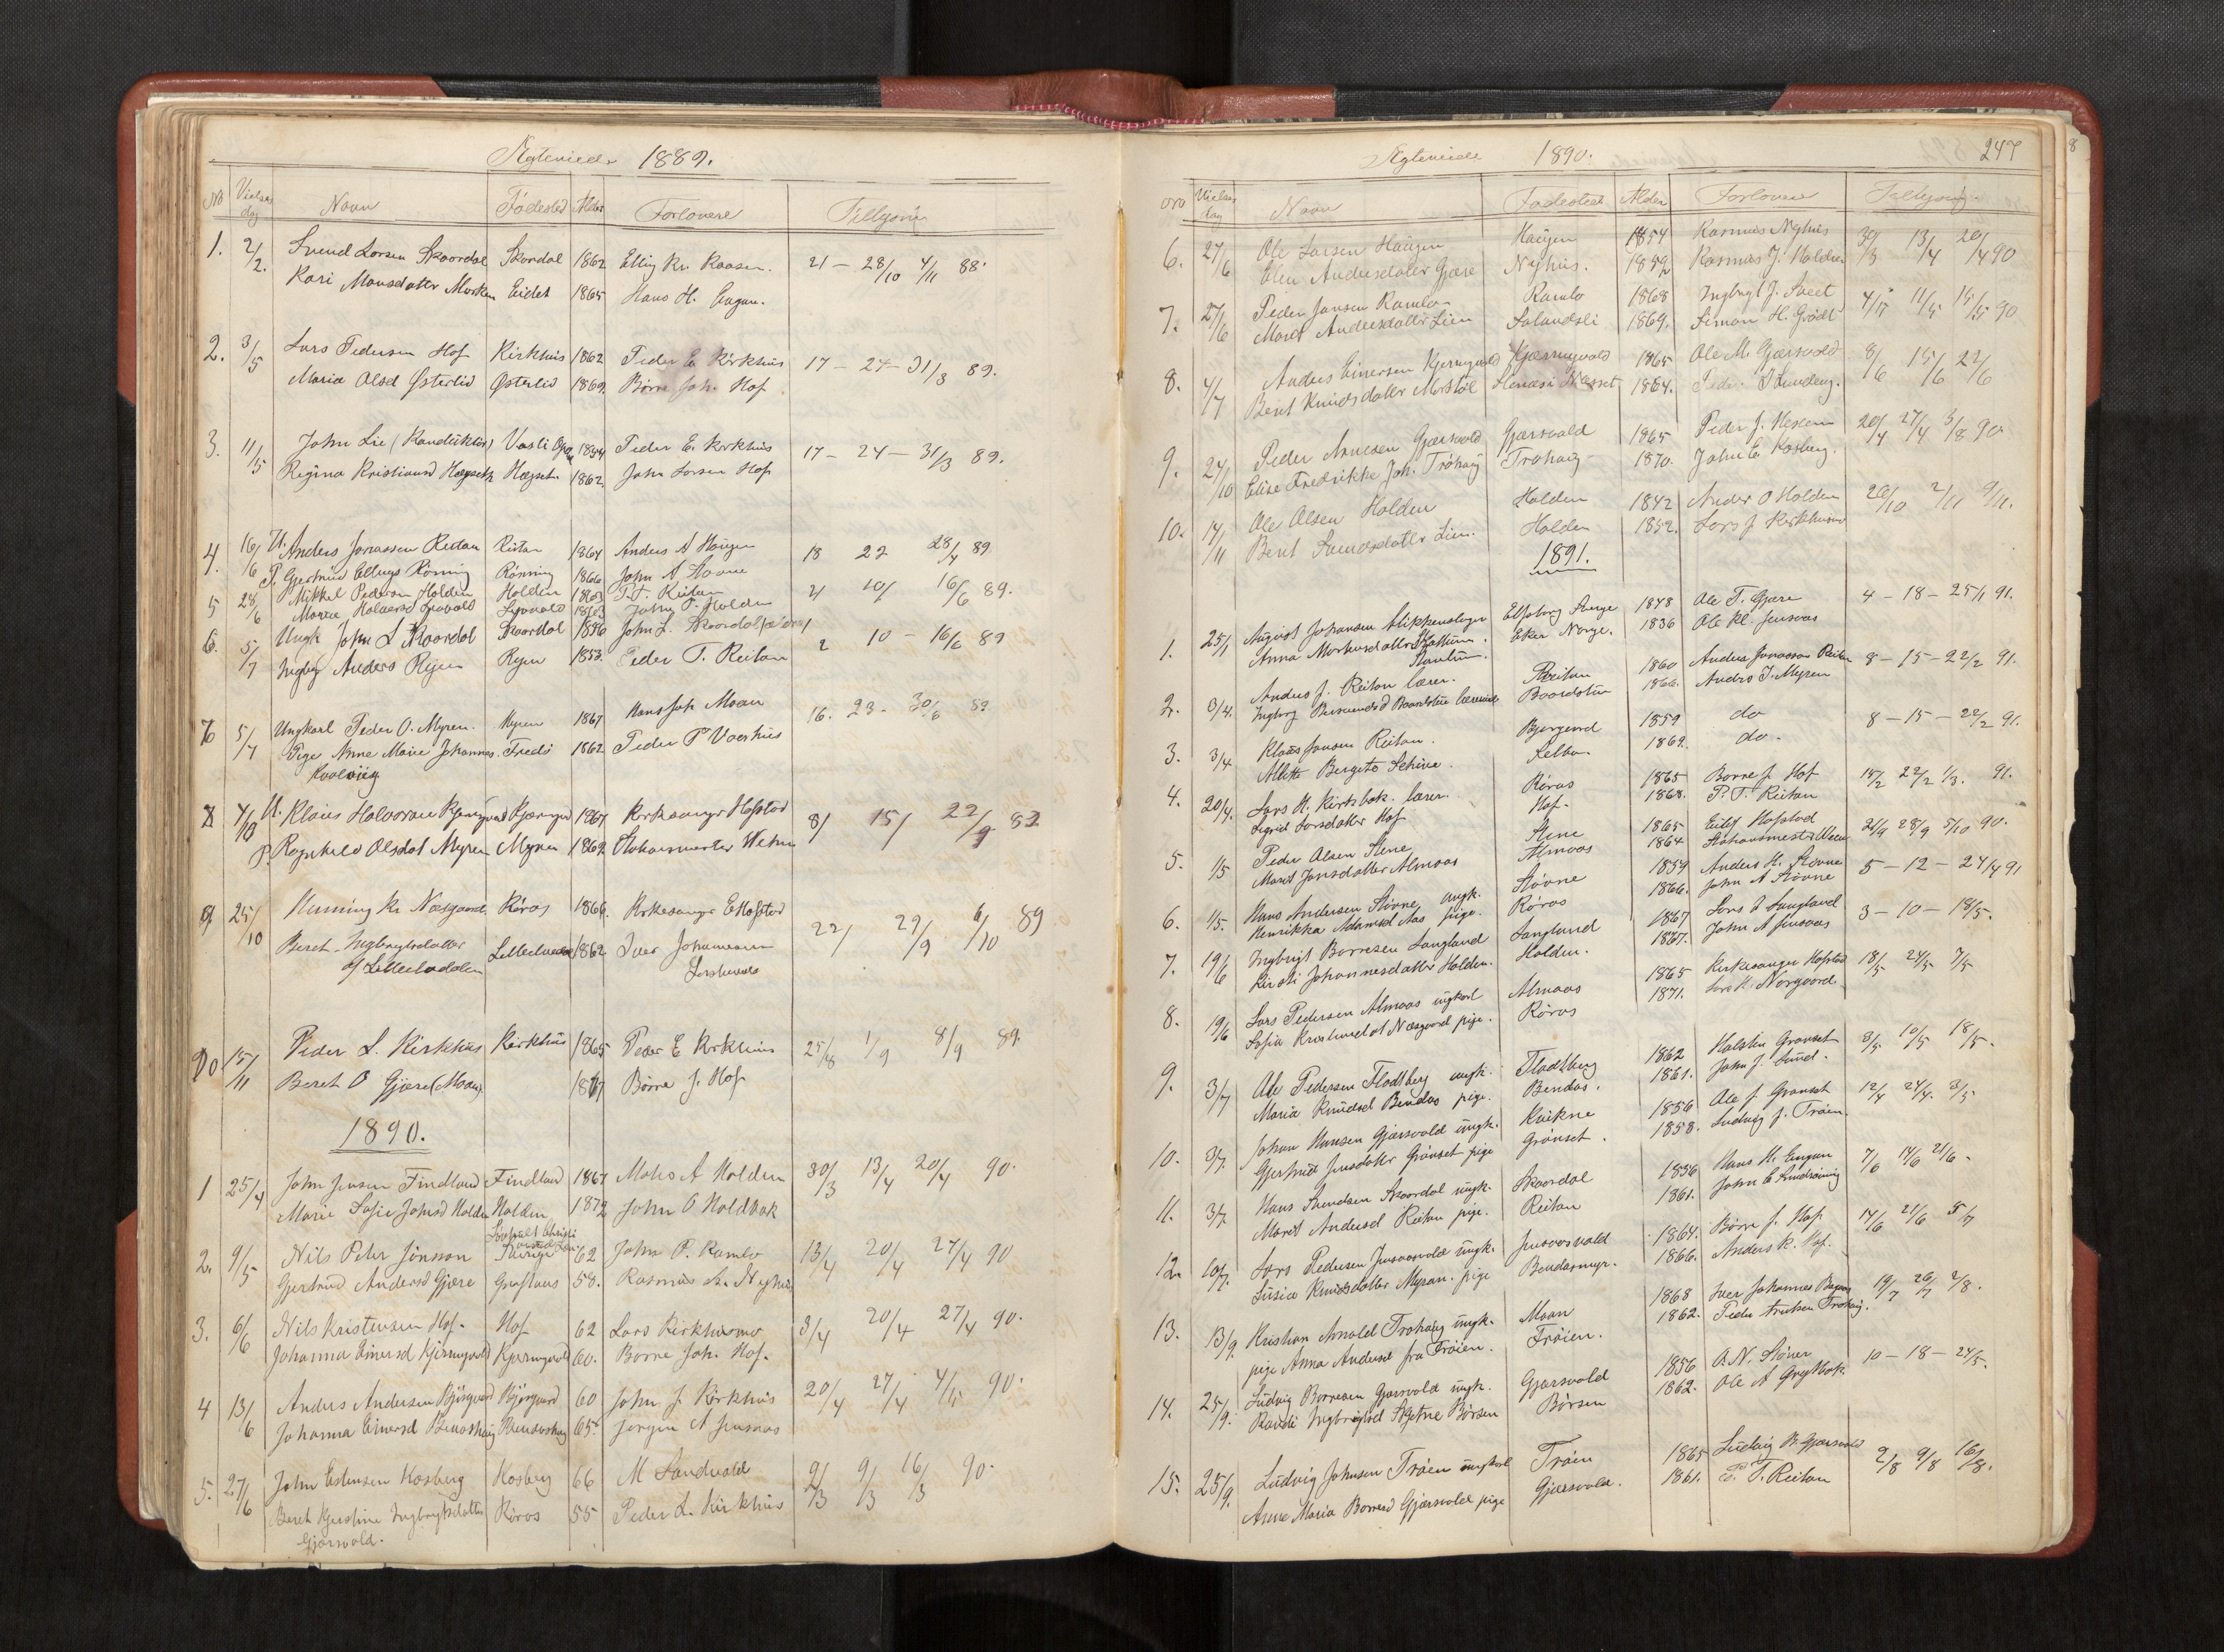 Ægteviede 1889.
No Vielses dag Navn Fødested Alder Forlovere Tillysning
1. 2/2. Svend Larsen Skaardal Skardal 1862 Elling Kr. Kaasen. 21 — 28/10 4/11 88.
Kari Monsdatter Morken Eidet 1865 Hans H. Engan.
2. 3/5 Lars Pedersen Hof Kirkhus 1862 Peder E Kirkhus 17 — 24 — 31/3 89.
Maria Olsd Østerlid Østerlid 1869. Børre Joh. Hof
3. 11/5 John Lie (Konduktør) Vasli 1854 Peder E. Kirkhus 17 — 24 — 31/3 89.
Regina Kristiansd Hægseth Hægset 1862. John Larsen Hof
4. 16/6 U. Anders Jonassen Reitan Reitan 1864 Anders A Haugen 18 22 28/4 89
P. Gjertrud Ellings Rönning Rönning 1866 John A Stovne
5 28/6 Mikkel Pedersen Holden Holden 1863 P. T. Reitan 2/ 10/ 16/6 89.
John P. Holden
6. 5/7 Ungk John L Skaardal Skaardal 1856 John L. Skaardal 2 10 — 16/6 89
Ingbg Anders Ryen Ryen 1853. Peder T. Reitan
7 5/7 Ungkarl Peder O. Myren. Myren 1867 Hans Joh Moan 16. 23 - 30/6 89
Pige Anne Marie Johannes. 1862 Peder P Voerhus
Kvalvig
8 4/10 U. Klaus Halvorsen Kjerngvold Kjerngvol 1867 Kirkesanger Hofstad 8/ 15/ 22/9 89
P. Ragnhild Olsdat Myren Myren 1862 Stationsmester
9 25/10 Henning Kr Næsgaard. Röros 1866. Kirkesanger E Hofstad 22/ 29/9 6/10 89
Beret Ingbrigtsdatter 1862 Iver Johannesen
af Litlelodalen
10 15/11 Peder L. Kirkhus Kirkhus 1865 Peder E Kirkhus 25/8 1/9 8/9 89.
Beret O Gjære (Moan) 1867 Børre J. Hof
1890.
1 25/4 John Jensen Findland Findland 1867 Mons A Holden 30/3 13/4 20/4 90.
Marie Sofie Johnsd Holden Holden 1872 John O Holdbak
2. 9/5 Nils Peter Jönsson Sverige 62 John P. Ramlo 13/4 20/4 27/4 90
Gjertrud Andersd Gjære 58. Rasmus L. Nyhus
3. 6/6 Nils Kristensen Hof. Hof 62 Lars Kirkhusmo 3/4 20/4 27/4 90.
Johanna Einersd Kjerngvold Kjerngvold 60. Børre Joh. Hof.
4 13/6 Anders Andersen Bjørgaard Bjørgaard 60 John J. Kirkhus 20/4 27/4 4/5 90.
Johanna Einersd Bendoshaug Bendoshaug 65. Jørgen A Jensaas
5. 27/6 John Estensen Kosberg Kosberg 66 M Sandvold 2/3 9/3 16/3 90.
Beret Kjerstine Ingbrigtsdatter Röros 55 Peder L. Kirkhus
Gjærsvold.
Ægteviede 1890. 247
No Vielses dag Navn Fødested Alder Forlovere Tillysning
6. 27/6 Ole Larsen Haugen Haugen 1854 Rasmus Nyhus 30/3 13/4 20/4 90
Elen Andersdatter Gjære Nyhus. 1859 Rasmus J. Holden
7. 27/6 Peder Jansen Ramlo Ramlo 1868 Ingbrigt J. Sveet 4/5 11/5 15/5 90
Marit Andersdatter Lien Solandsli 1869. Simon H. Grödt
8. 4/7 Anders Einersen Kjerngvold Kjærngvold 1865 Ole M. Gjærsvold 8/6 15/6 22/6
Berit Knudsdatter Morstøl 1864.
9. 24/10 Peder Arnesen Gjærsvold Gjærsvold 1865 Peder J. 20/4 27/4 3/8 90.
Elise Fredrikke Joh. Trøhaug Trøhaug 1870. John E Kosberg.
10. 14/11 Ole Olsen Holden Holden 1842 Anders O Holden 26/10 2/11 9/11.
Berit Svendsdatter Lien. Holden 1852. Lars J Kirkhusmo
1891.
1. 25/1 August Johansen Elfsborg Sverge 1848 Ole T. Gjære 4 — 18 — 25/1 91.
Anna Markusdatter Eker Norge. 1836 Ole Kl. Jensaas
2. 3/4. Anders J. Reitan lærer. Reitan 1860 Anders Jonassen Reitan 8 — 15 — 22/2 91.
Ingborg Baardstu lærerinde Baardstu 1866. Anders J. Myren
3. 3/4 Klaus Jansen Reitan. Bjørgard 1859 do 8 — 15 — 22/2 91.
Alette Bergitte Schive. Selbu. 1869. do.
4. 20/4. Lars H. Kirksbak. lærer. Röros 1865 Børre J. Hof 15/2 22/2 1/3. 91.
Sigrid Larsdatter Hof Hof. 1868. P. T. Reitan
5. 1/5 Peder Olsen Stene Stene 1865 Eilif Hofstad 21/9 28/9 5/10 90.
Marit Jonsdatter Almaas Almaas 1864
6. 1/5. Hans Andersen Stövne ungk. Stövne 1859 Anders H. Stövne 5 — 12 — 24/4 91
Henrikka Adamsd Aas pige. Röros 1866. John A Stövne
7. 19/6 Ingbrigt Børresen Langland Langland 1867 Lars I Langland 3 — 10 — 18/5.
Kirsti Johannesdatter Holden. Holden. 1867. John A Jensaas
8. 19/6 Lars Pedersen Almaas ungkarl Almaas 1865 Kirkesanger Hofstad 18/5 24/5 7/5
Sofie Næsgaard pige. Röros 1871.
9. 3/7 Ole Pedersen Flodtberg ungk. Flodtberg 1862 Halsten Grönset 3/5 10/5 18/5.
Maria Knudsd Bendos pige. Bendos. 1861. John J. Sund.
10. 3/7. Johan Hansen Gjærsvold ungk. Kvikne 1856 Ole J Grønset 12/4 24/4. 3/5
Gjertrud Jensdatter Grönset pige Grönset. 1858. Ludvig J. Tröen.
11. 3/7. Hans Svendsen Skaardal ungk. Skaardal 1856 Hans H. Engan 7/6 14/6 21/6.
Marit Andersd Reitan pige. Reitan 1861.
12. 10/7. Lars Pedersen Jensaasvold ungk. Jensaasvold 1864. Børre J. Hof 14/6 21/6 5/7
Susie Knudsdatter Myran. pige Bendosmyr. 1866. Anders K. Hof.
13. 13/9. Kristian Arnold Trøhaug ungk. Moan 1868 Iver Johannes 19/7 26/7 2/8.
pige Anna Andersd fra Tröien. Tröien. 1862. Peder Trøhaug.
14. 25/9. Ludvig Børresen Gjærsvold ungk. Gjærsvold 1856 O. N. Stöver 10 — 18 — 24/5.
Randi Ingbrigtsd Skjetne Börsen Börsen 1862. Ole A Grytbak.
15. 25/9. Ludvig Johnsen Tröen ungkarl Tröen 1865 Ludvig B. Gjærsvold 2/8 9/8 16/8.
Anne Maria Børresd Gjærsvold pige Gjærsvold. 1861. P. T. Reitan